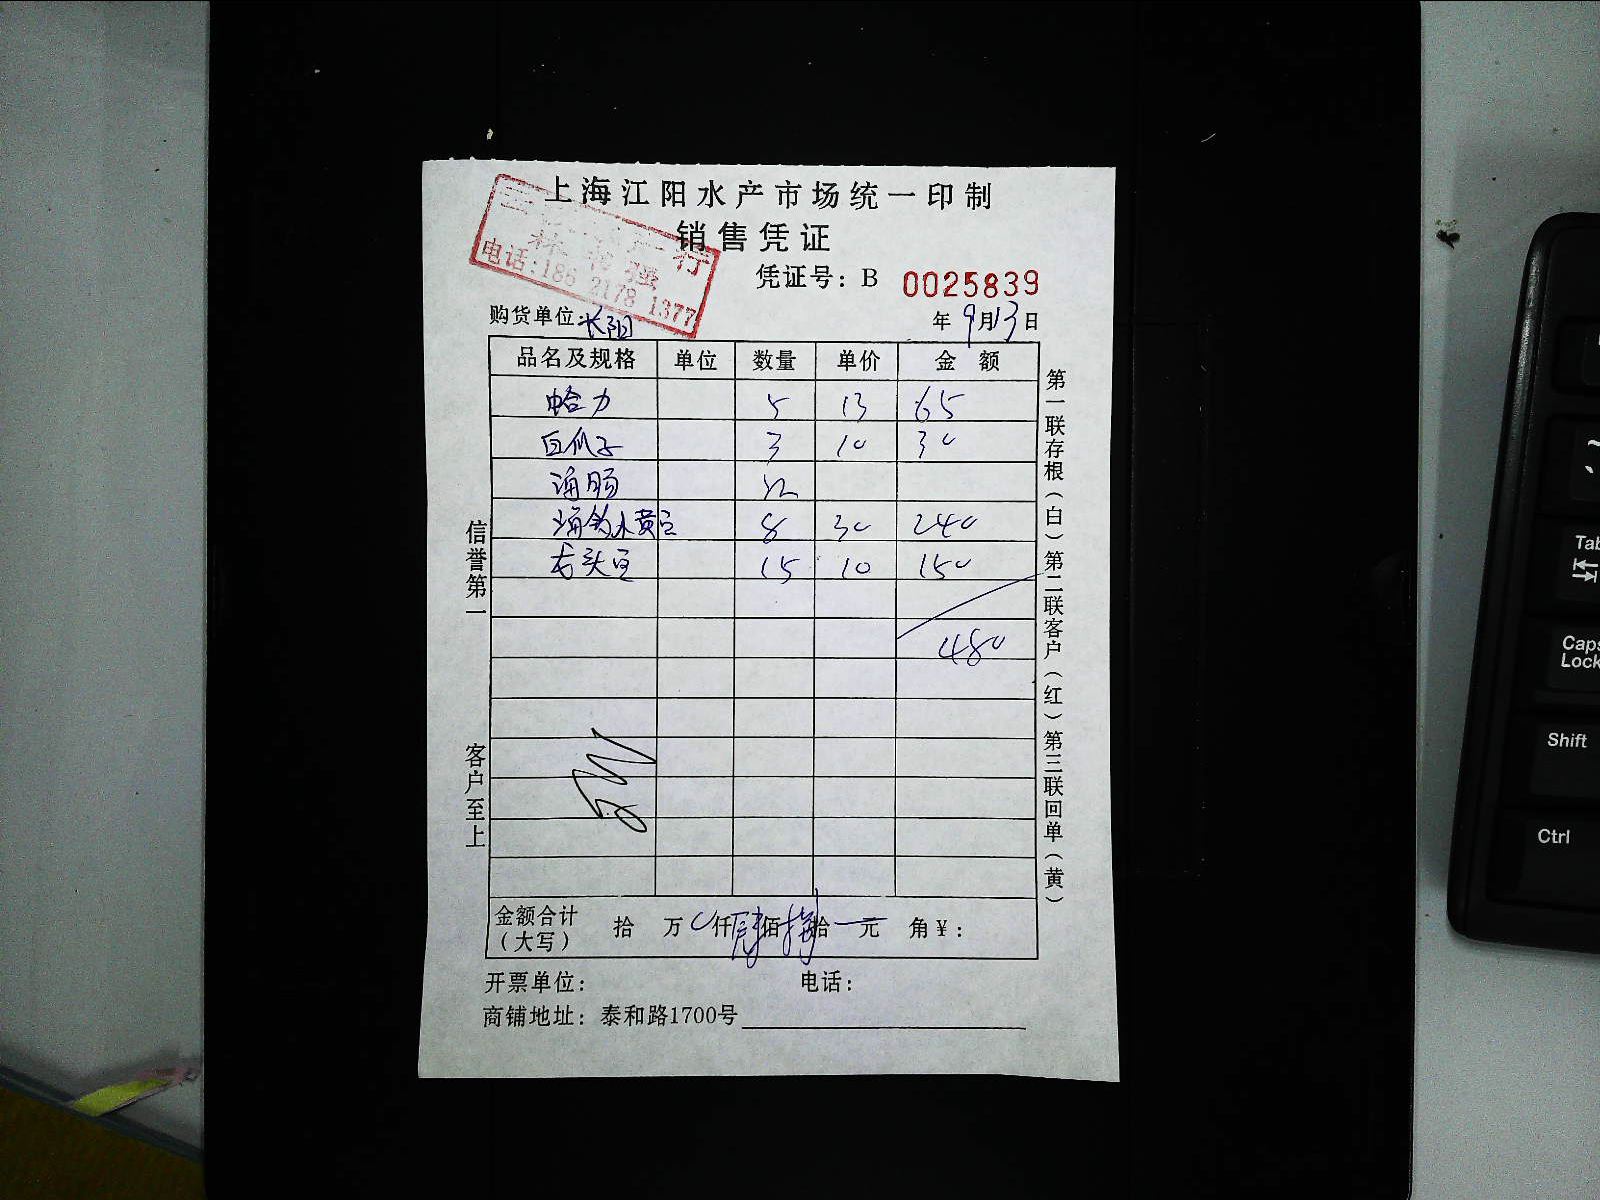 上海江阳水产市场统一印制
销售凭证
电话:186 2178 1377
凭证号: B 0025839
购货单位: 长阳
年 9月13日
品名及规格 单位 数量 单价 金 额
蛤力 5 13 65
白瓜子 3 10 30
海肠
8 30 240
15 10 150
480
金额合计(大写) 拾 万 仟 肆佰 捌拾 元 角¥:
开票单位: 电话:
商铺地址: 泰和路1700号
信誉第一 客户至上
第一联存根(白)第二联客户(红)第三联回单(黄)
Tab
Caps Lock
Shift
Ctrl